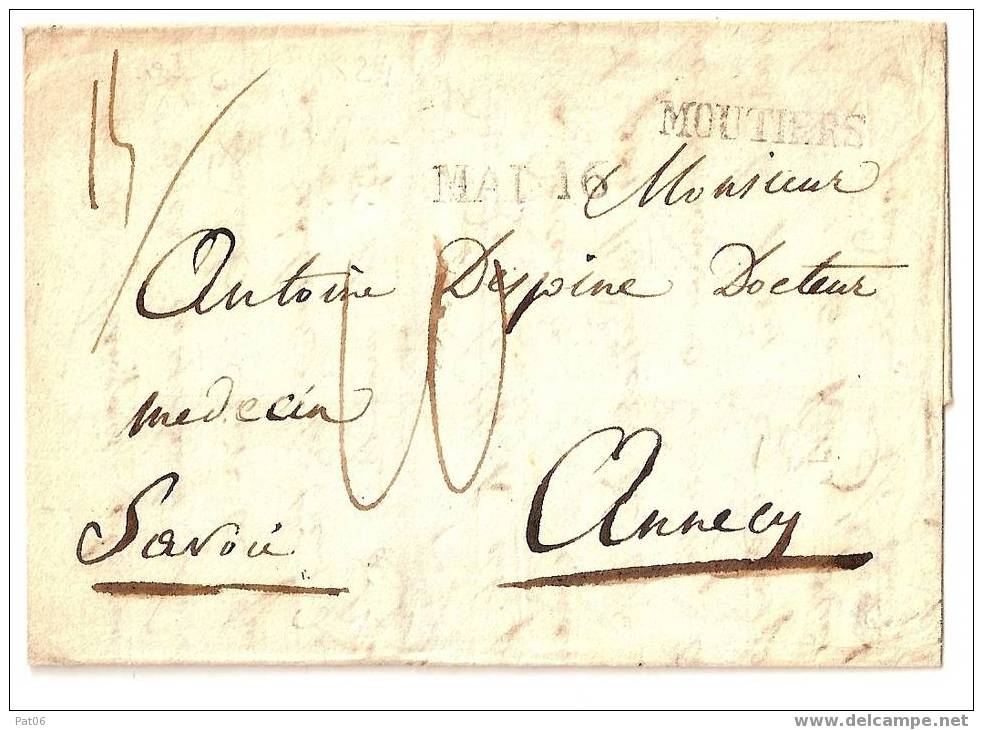 MOUTIERS
MAI 16
Monsieur
Antoine Despine Docteur
medecin
Savoie
Annecy
Pat06
www.delcampe.net